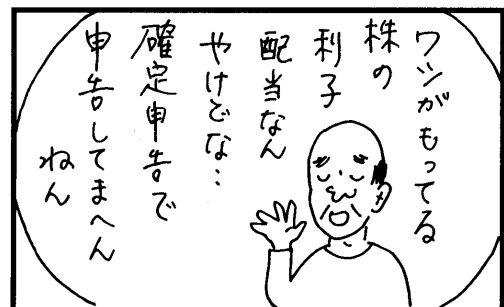 ワシがもってる
株の
利子
配当なん
やけどな…
確定申告で
申告してまへん
ねん